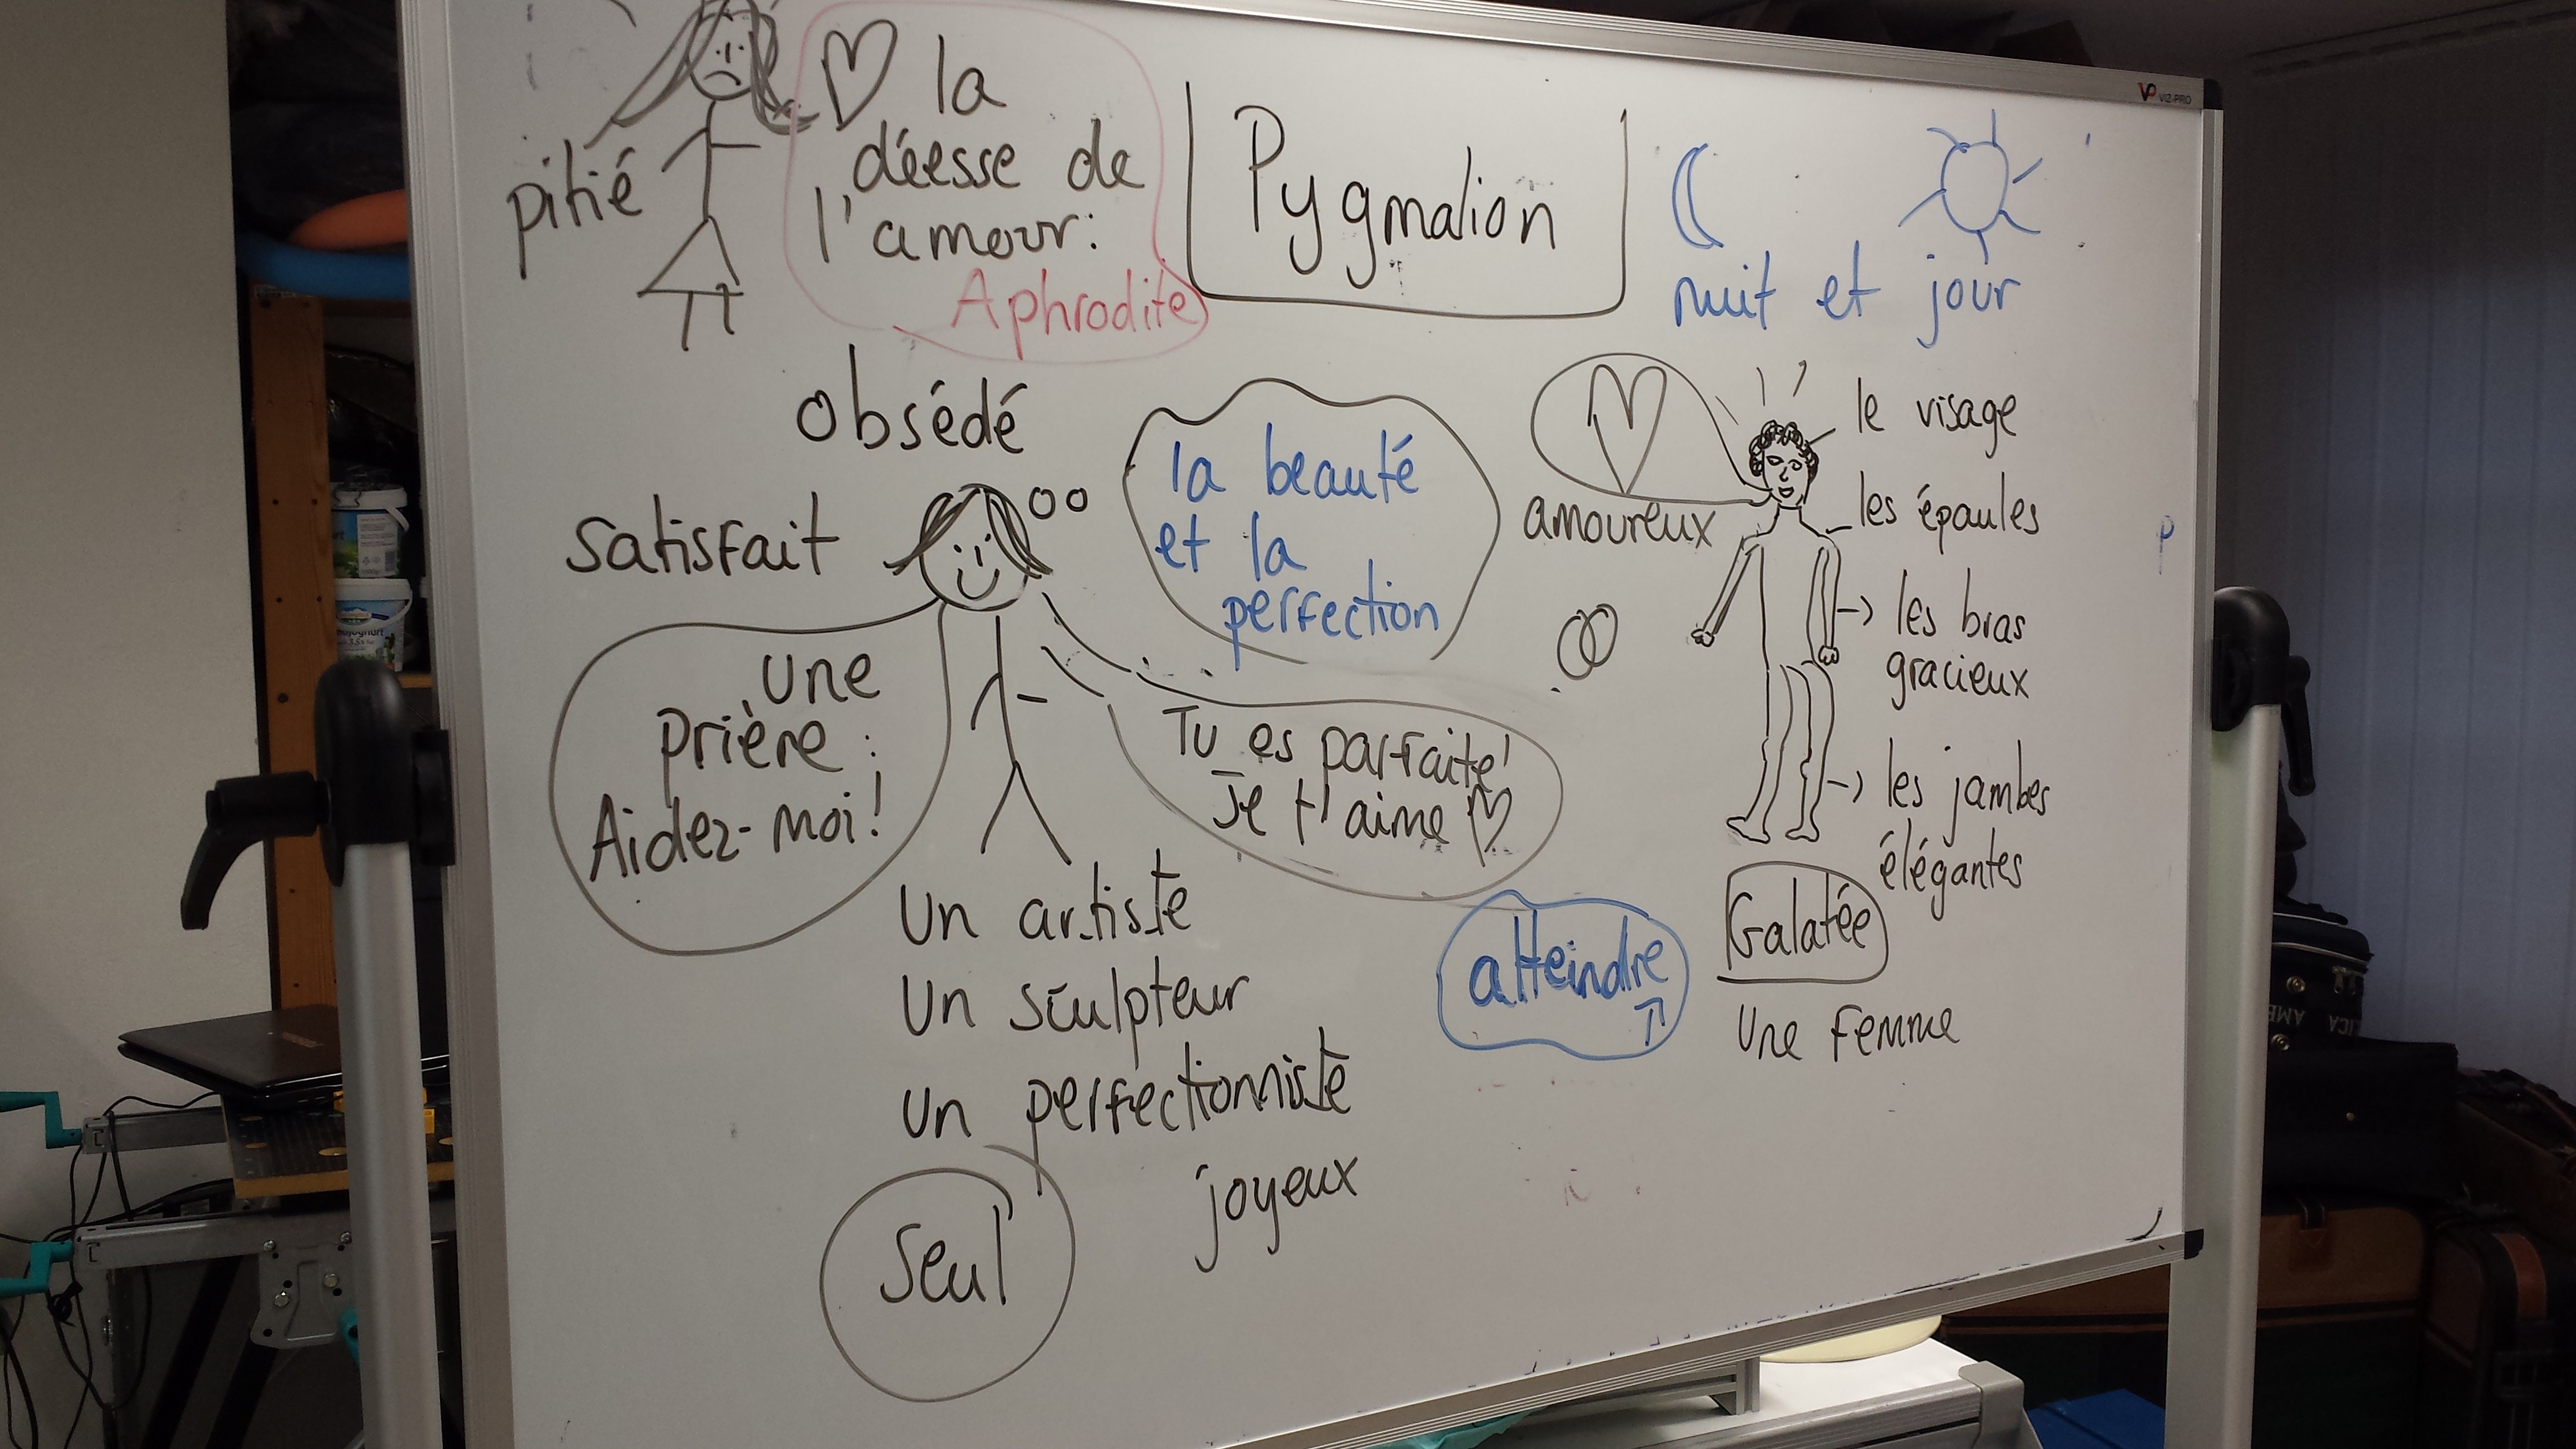 pitié
la
déesse de
l'amour:
Aphrodite
Pygmalion
VIZ-PRO
nuit et jour
obsédé
satisfait
la beauté
et la
perfection
amoureux
le visage
les épaules
les bras
gracieux
les jambes
élégantes
Galatée
une femme
une
prière:
Aidez-moi!
Tu es parfaite!
Je t'aime
un artiste
un sculpteur
un perfectionniste
joyeux
seul
atteindre
P